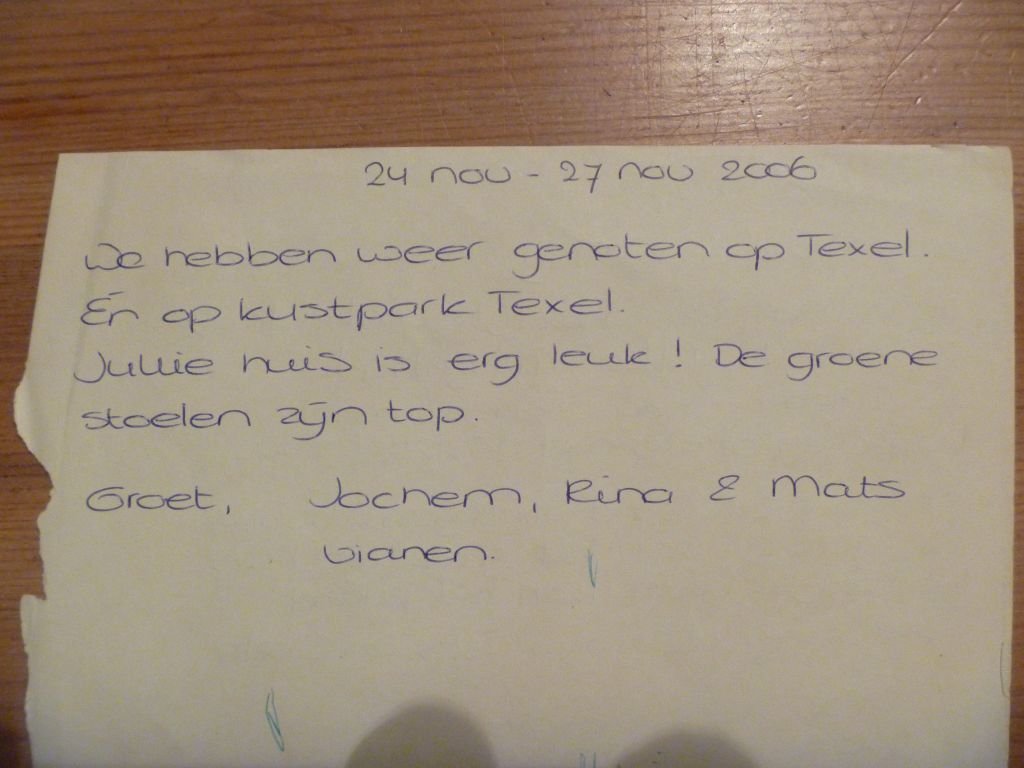 24 nov - 27 nov 2006
We hebben weer genoten op Texel.
Én op kustpark Texel.
Jullie huis is erg leuk! De groene
stoelen zijn top.
Groet, Jochem, Rina & Mats
Vianen.